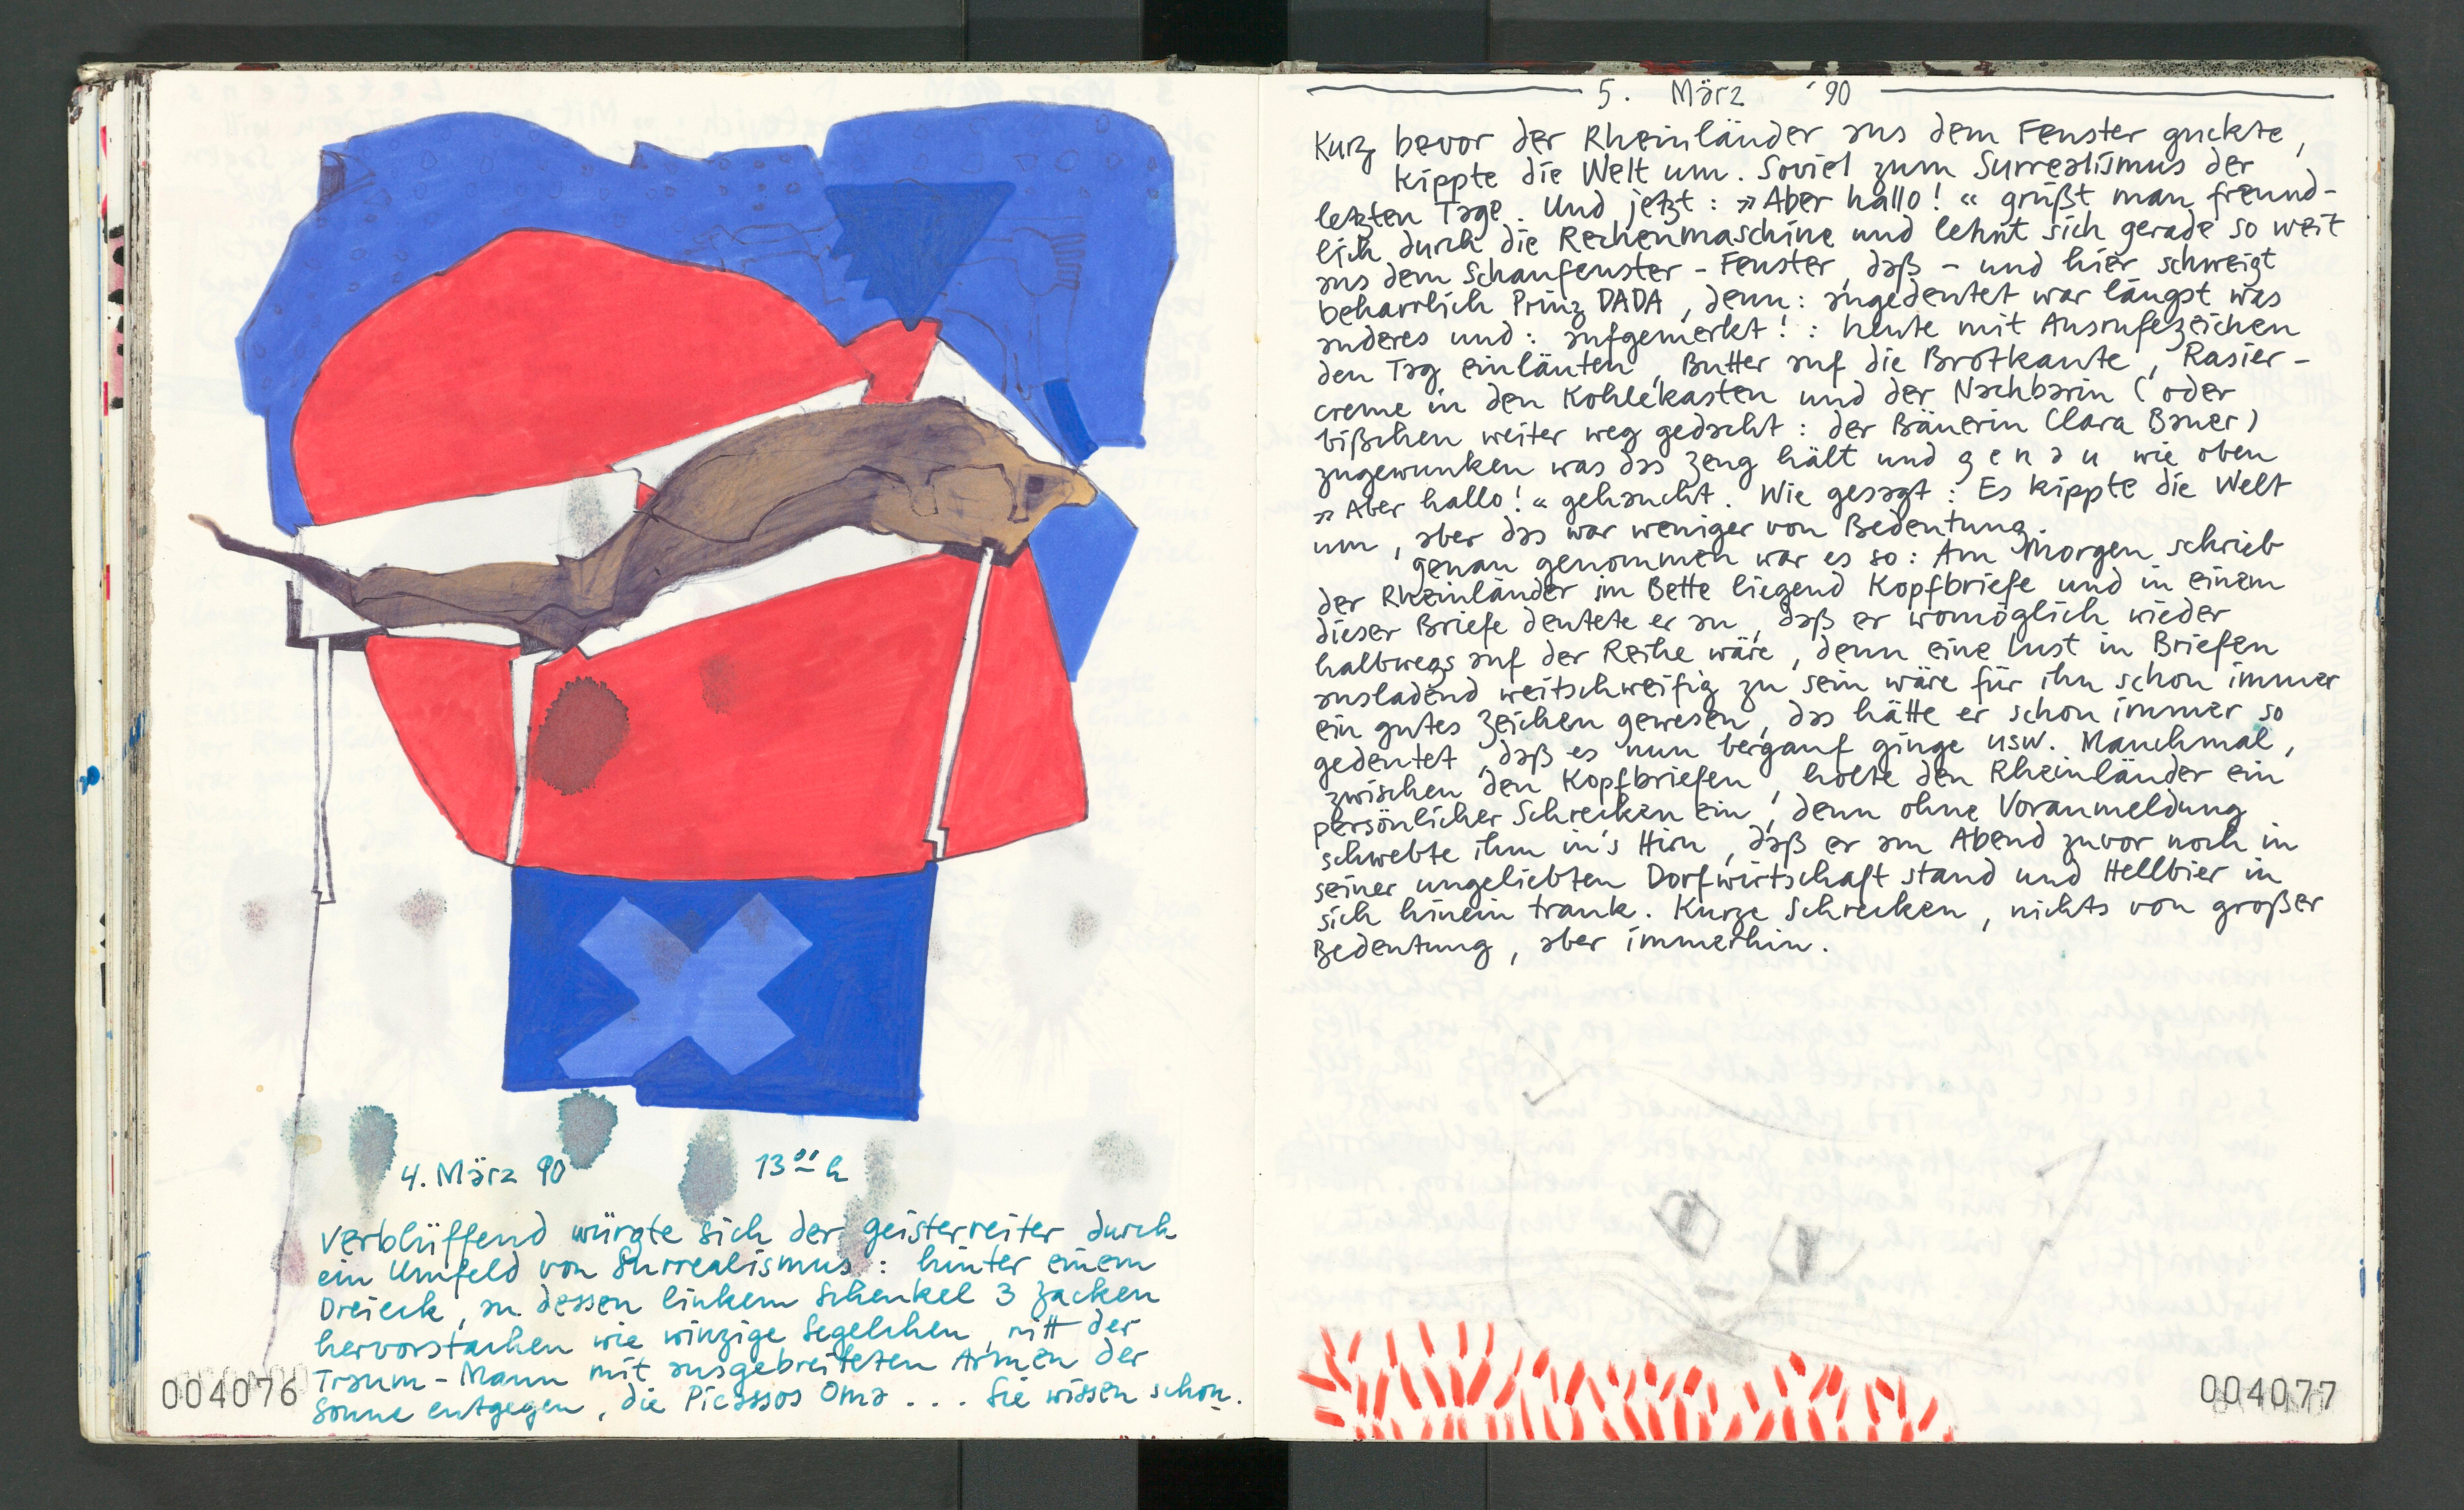 4. März 90 13ºº h
verblüffend würgte sich der geisterreiter durch
ein Umfeld von Surrealismus : hinter einem
Dreieck, an dessen linkem Schenkel 3 Zacken
hervorstachen wie winzige Segelchen, ritt der
Traum-Mann mit ausgebreiteten Armen der
Sonne entgegen, die Picassos Oma . . . Sie wissen schon.
004076
5. März '90
Kurz bevor der Rheinländer aus dem Fenster guckte,
kippte die Welt um. Soviel zum Surrealismus der
letzten Tage. Und jetzt : »Aber hallo! « grüßt man freund-
lich durch die Rechenmaschine und lehnt sich gerade so weit
aus dem Schaufenster-Fenster, daß - und hier schweigt
beharrlich Prinz DADA, denn: angedeutet war längst was
anderes und : aufgemerkt! : heute mit Ausrufezeichen
den Tag einläuten, Butter auf die Brotkante, Rasier-
creme in den Kohlekasten und der Nachbarin (oder
bißchen weiter weg gedacht : der Bäuerin Clara Bauer)
zugewunken was das Zeug hält und g e n a u wie oben
»Aber hallo!« gehaucht. Wie gesagt : Es kippte die Welt
um, aber das war weniger von Bedeutung.
genau genommen war es so : Am Morgen schrieb
der Rheinländer im Bette liegend Kopfbriefe und in einem
dieser Briefe deutete er an, daß er womöglich wieder
halbwegs auf der Reihe wäre, denn eine Lust in Briefen
ausladend weitschweifig zu sein wäre für ihn schon immer
ein gutes Zeichen gewesen, das hätte er schon immer so
gedeutet, daß es nun bergauf ginge usw. Manchmal,
zwischen den Kopfbriefen, holte den Rheinländer ein
persönlicher Schrecken ein, denn ohne Voranmeldung
schwebte ihm in's Hirn, daß er am Abend zuvor noch in
seiner ungeliebten Dorfwirtschaft stand und Hellbier in
sich hinein trank. Kurze Schrecken, nichts von großer
Bedeutung, aber immerhin.
004077